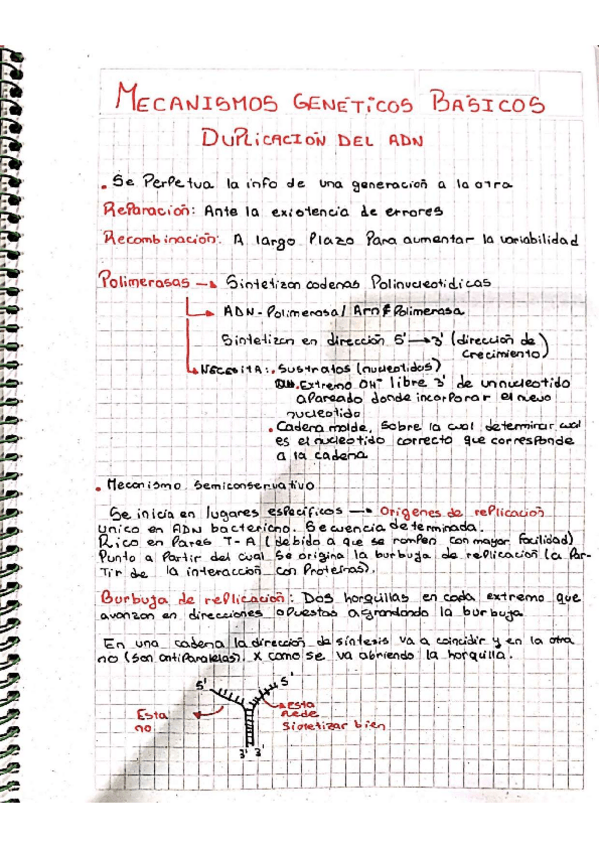 MECANISMOS GENÉTICOS BÁSICOS
DUPLICACIÓN DEL ADN
. Se Perpetua la info de una generación a la otra
Reparación: Ante la existencia de errores
Recombinación: A largo Plazo Para aumentar la variabilidad
Polimerasas → Sintetizan cadenas Polinucleotídicas
ADN - Polimerasa / Arn Polimerasa
Sintetizan en dirección 5' → 3' (dirección de
crecimiento)
NECESITA: . Sustratos (nucleotidos)
. Extremo OH⁻ libre 3' de un nucleotido
apareado donde incorporar el nuevo
nucleotido
. Cadena molde, sobre la cual determinar cual
es el nucleotido correcto que corresponde
a la cadena
. Mecanismo semiconservativo
Se inicia en lugares específicos → Origenes de replicación
unico en ADN bacteriano. Secuencia determinada.
Rico en Pares T-A (debido a que se rompen con mayor facilidad)
Punto a Partir del cual se origina la burbuja de replicación (a Par-
tir de la interacción con Proteínas).
Burbuja de replicación: Dos horquillas en cada extremo que
avanzan en direcciones opuestas agrandando la burbuja
En una cadena la dirección de síntesis va a coincidir y en la otra
no (son antiparalelas). X como se va abriendo la horquilla.
5' 5'
Esta
no
esta
Puede
sintetizar bien
3' 3'